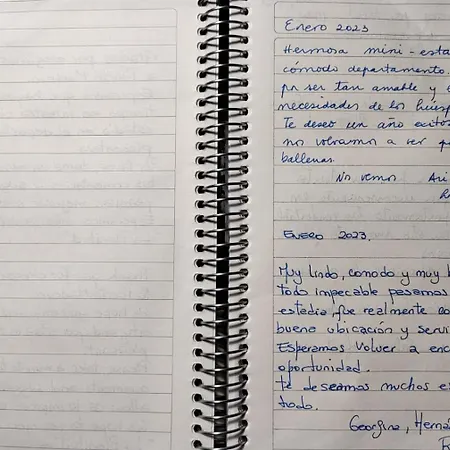 Enero 2023
Hermosa mini-esta
cómodo departamento.
por ser tan amable y
necesidades de los huésp
Te deseo un año exitos
nos volvamos a ver
ballenas.
Nos vemos Ari
ENERO 2023.
Muy lindo, comodo y muy
todo impecable pasamos
estadia, fue realmente
buena ubicación y servi
Esperamos volver a
oportunidad.
te deseamos muchos
todo.
Georgina, Herná